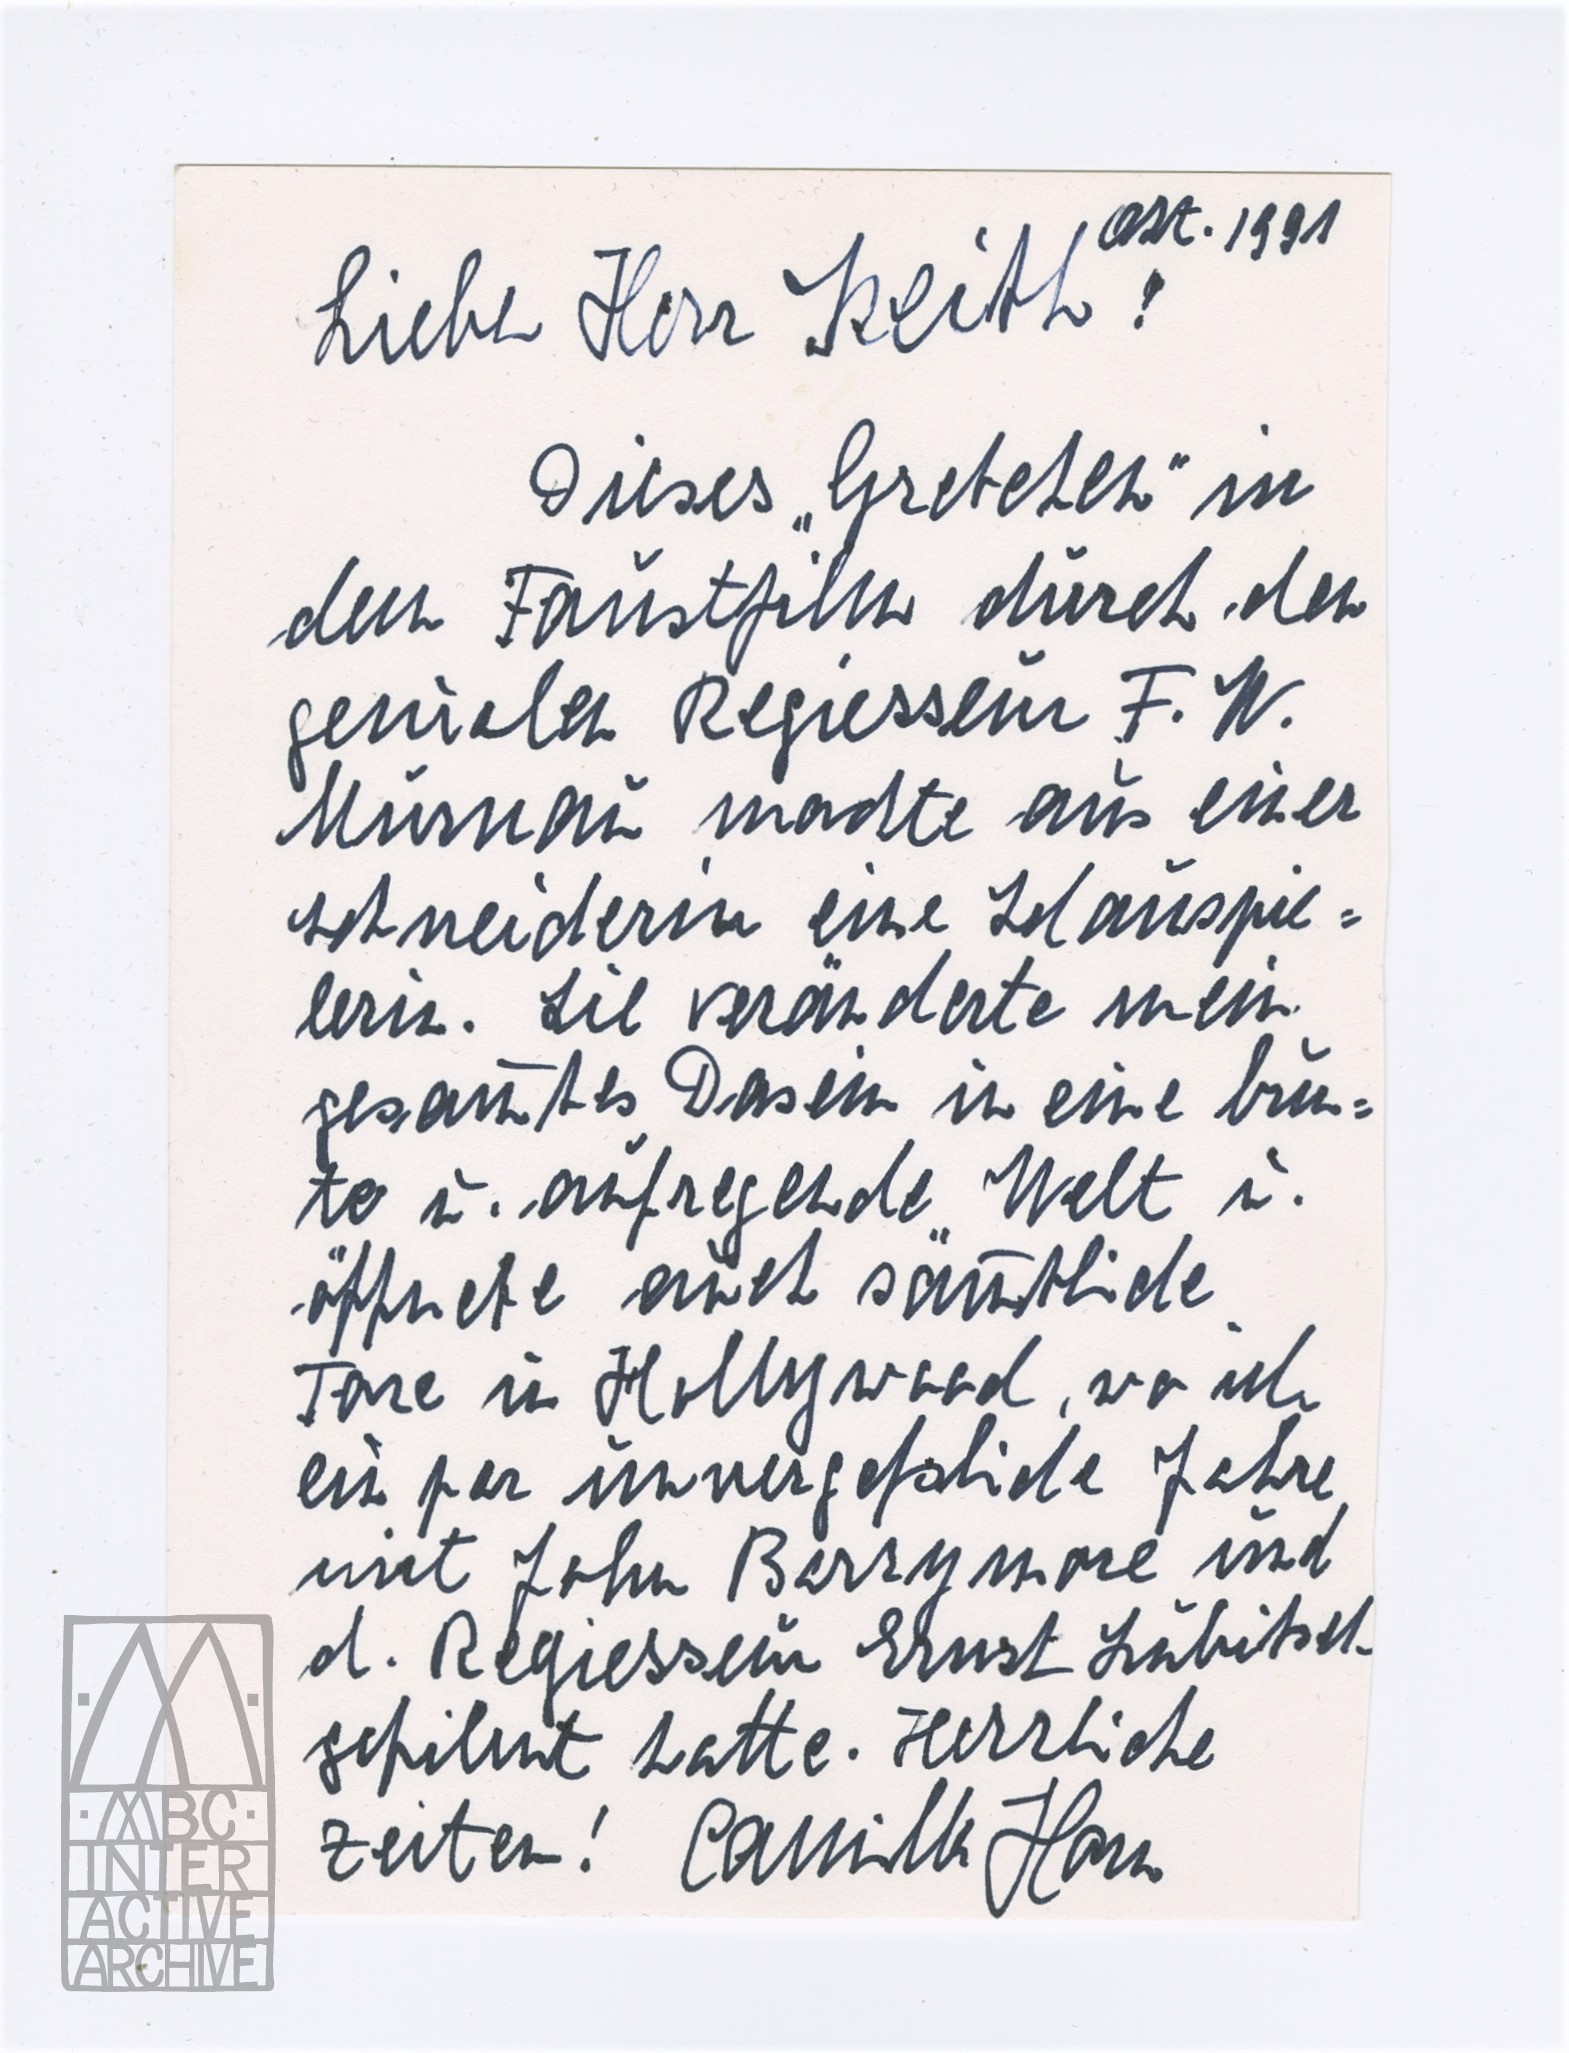 Okt. 1991
Lieber Herr Keith!
Dieses „Gretchen" in
dem Faustfilm durch den
genialen Regiesseur F. W.
Murnau machte aus einer
Schneiderin eine Schauspie=
lerin. Sie veränderte mein
gesam̄tes Dasein in eine bun=
te u. aufregende Welt u.
öffnete auch säm̄tliche
Tore in Hollywood, wo ich
ein par unvergeßliche Jahre
mit John Barrymore und
d. Regiesseur Ernst Lubitsch
gefilmt hatte. Herrliche
Zeiten! Camilla Horn
ABC
INTER
ACTIVE
ARCHIVE